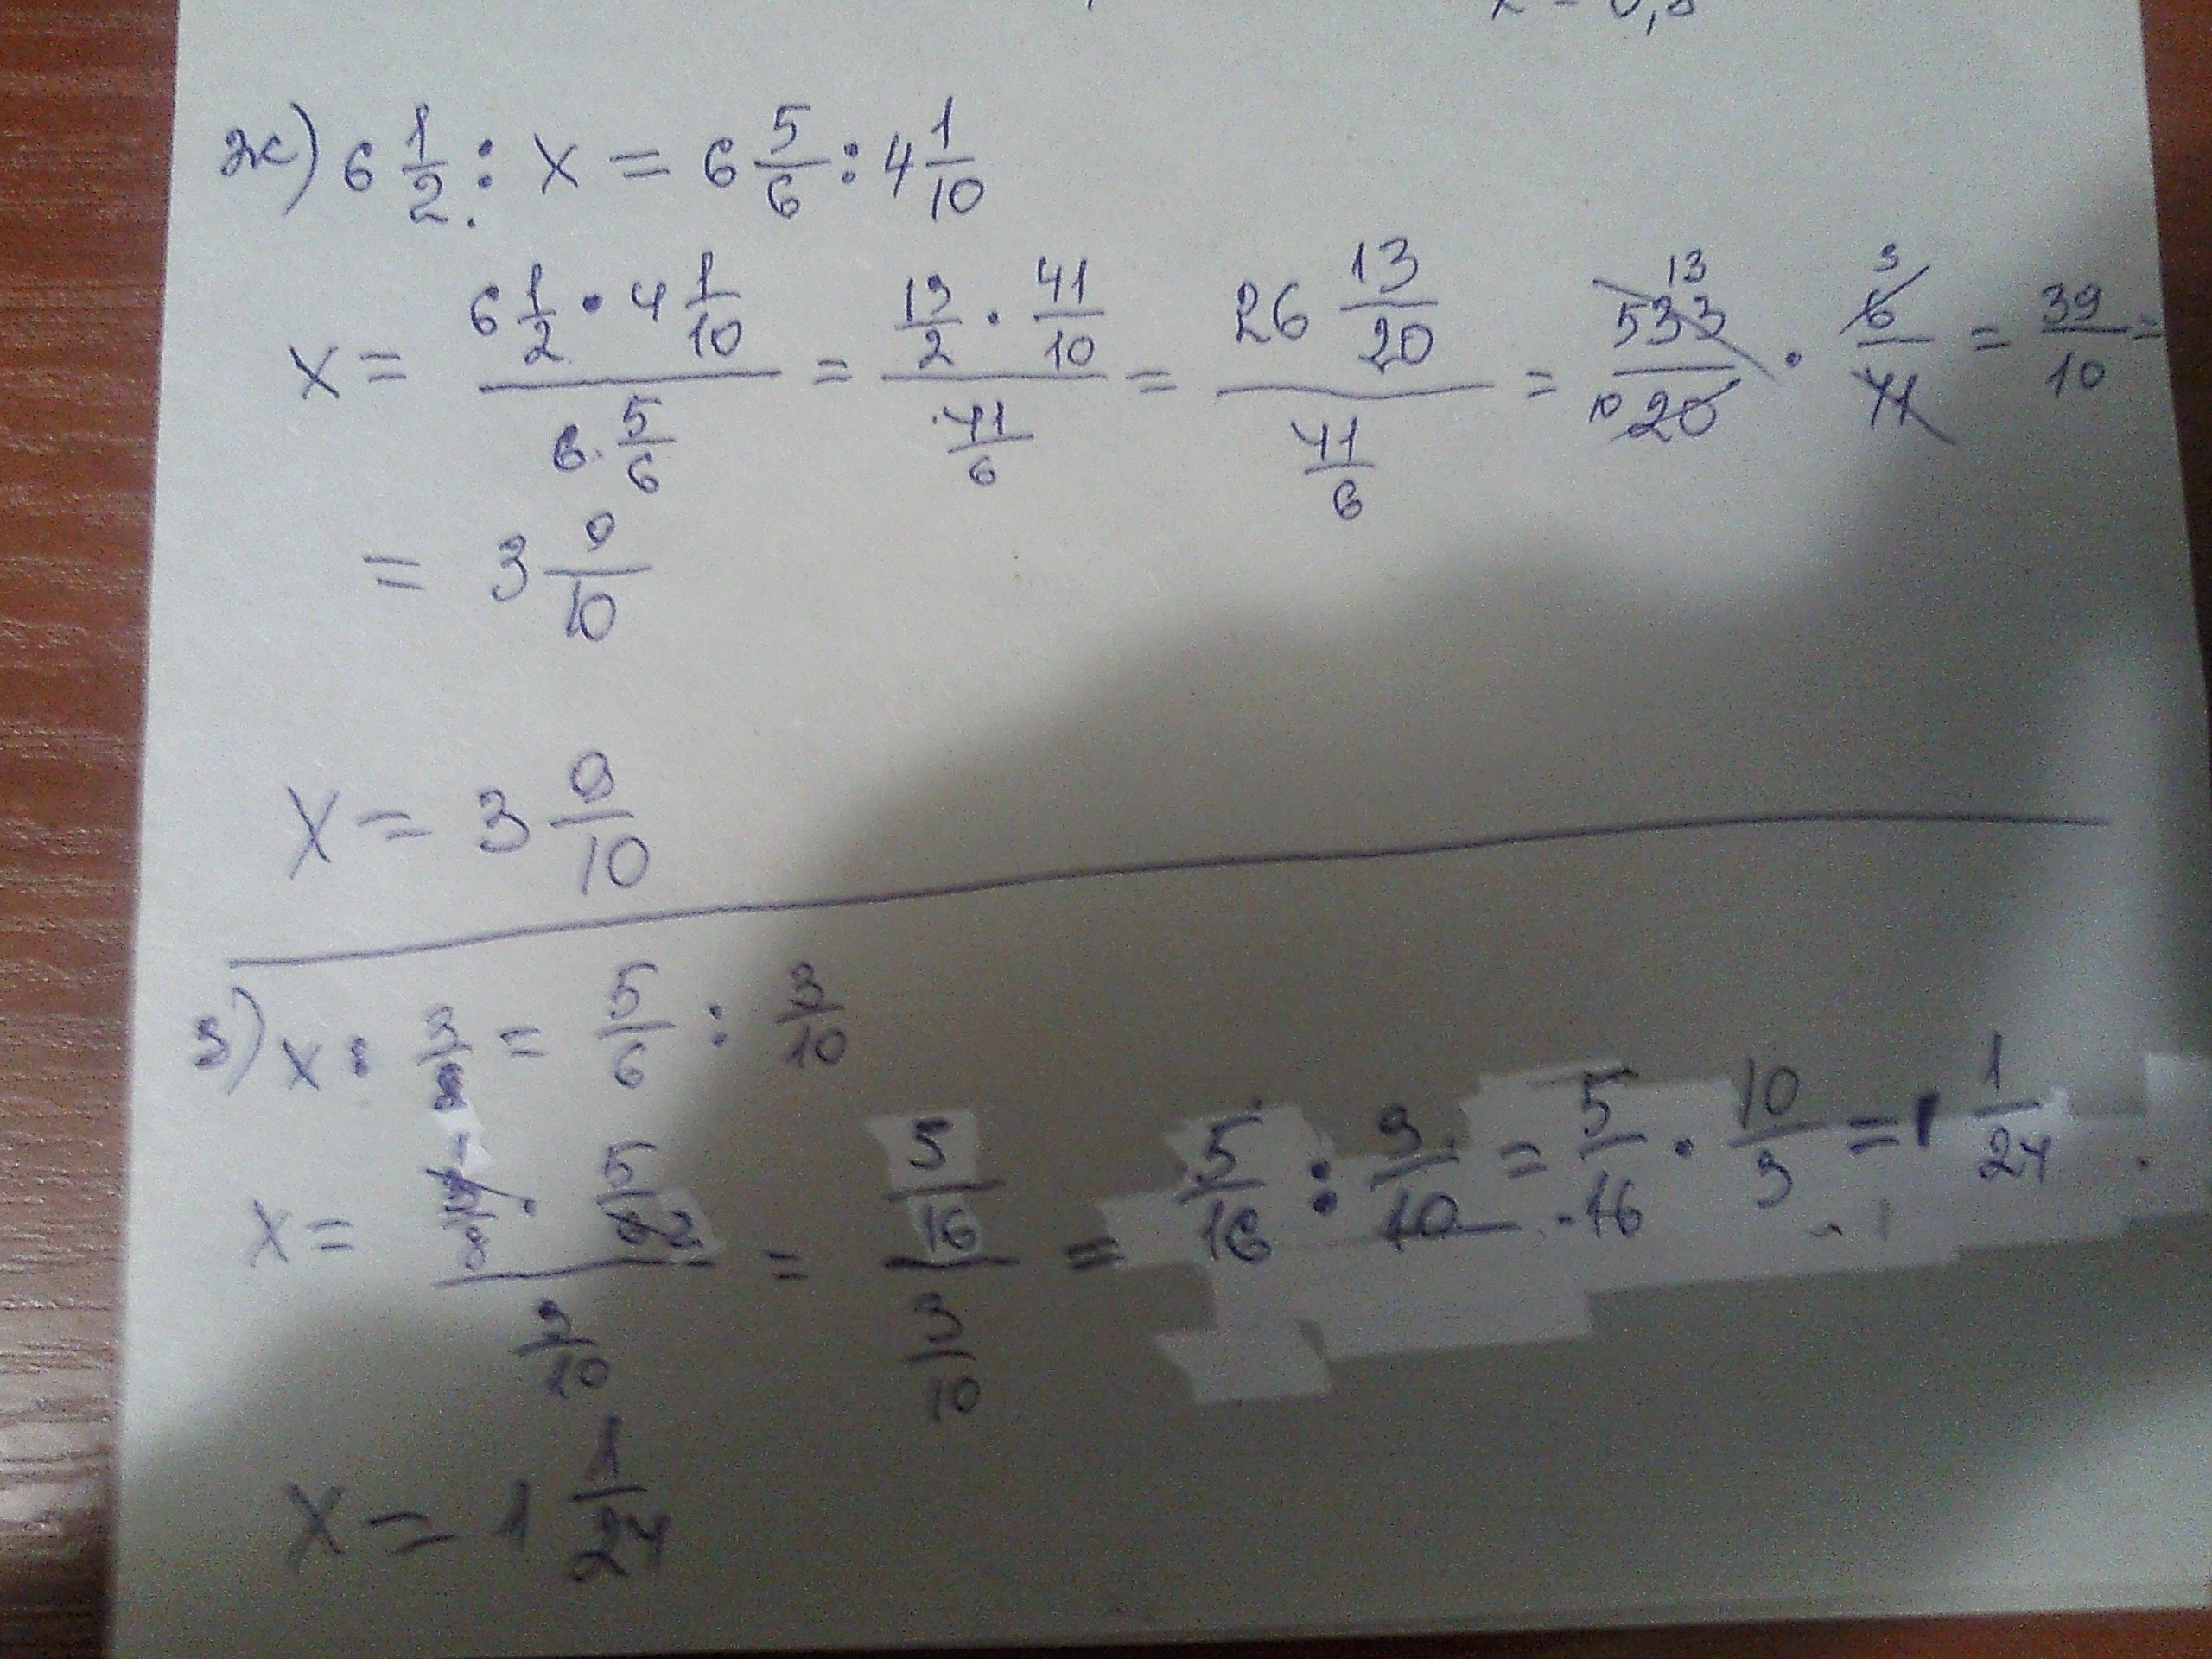 x = 0,8
ж) 6 1/2 : x = 6 5/6 : 4 1/10
x = (6 1/2 · 4 1/10)/(6 5/6) = (13/2 · 41/10)/(41/6) = (26 13/20)/(41/6) = 533/20 · 6/41 = 39/10 =
13 3 10
= 3 9/10
x = 3 9/10
з) x : 3/8 = 5/6 : 3/10
x = (3/8 · 5/6)/(3/10) = (5/16)/(3/10) = 5/16 : 3/10 = 5/16 · 10/3 = 1 1/24
1 2
x = 1 1/24